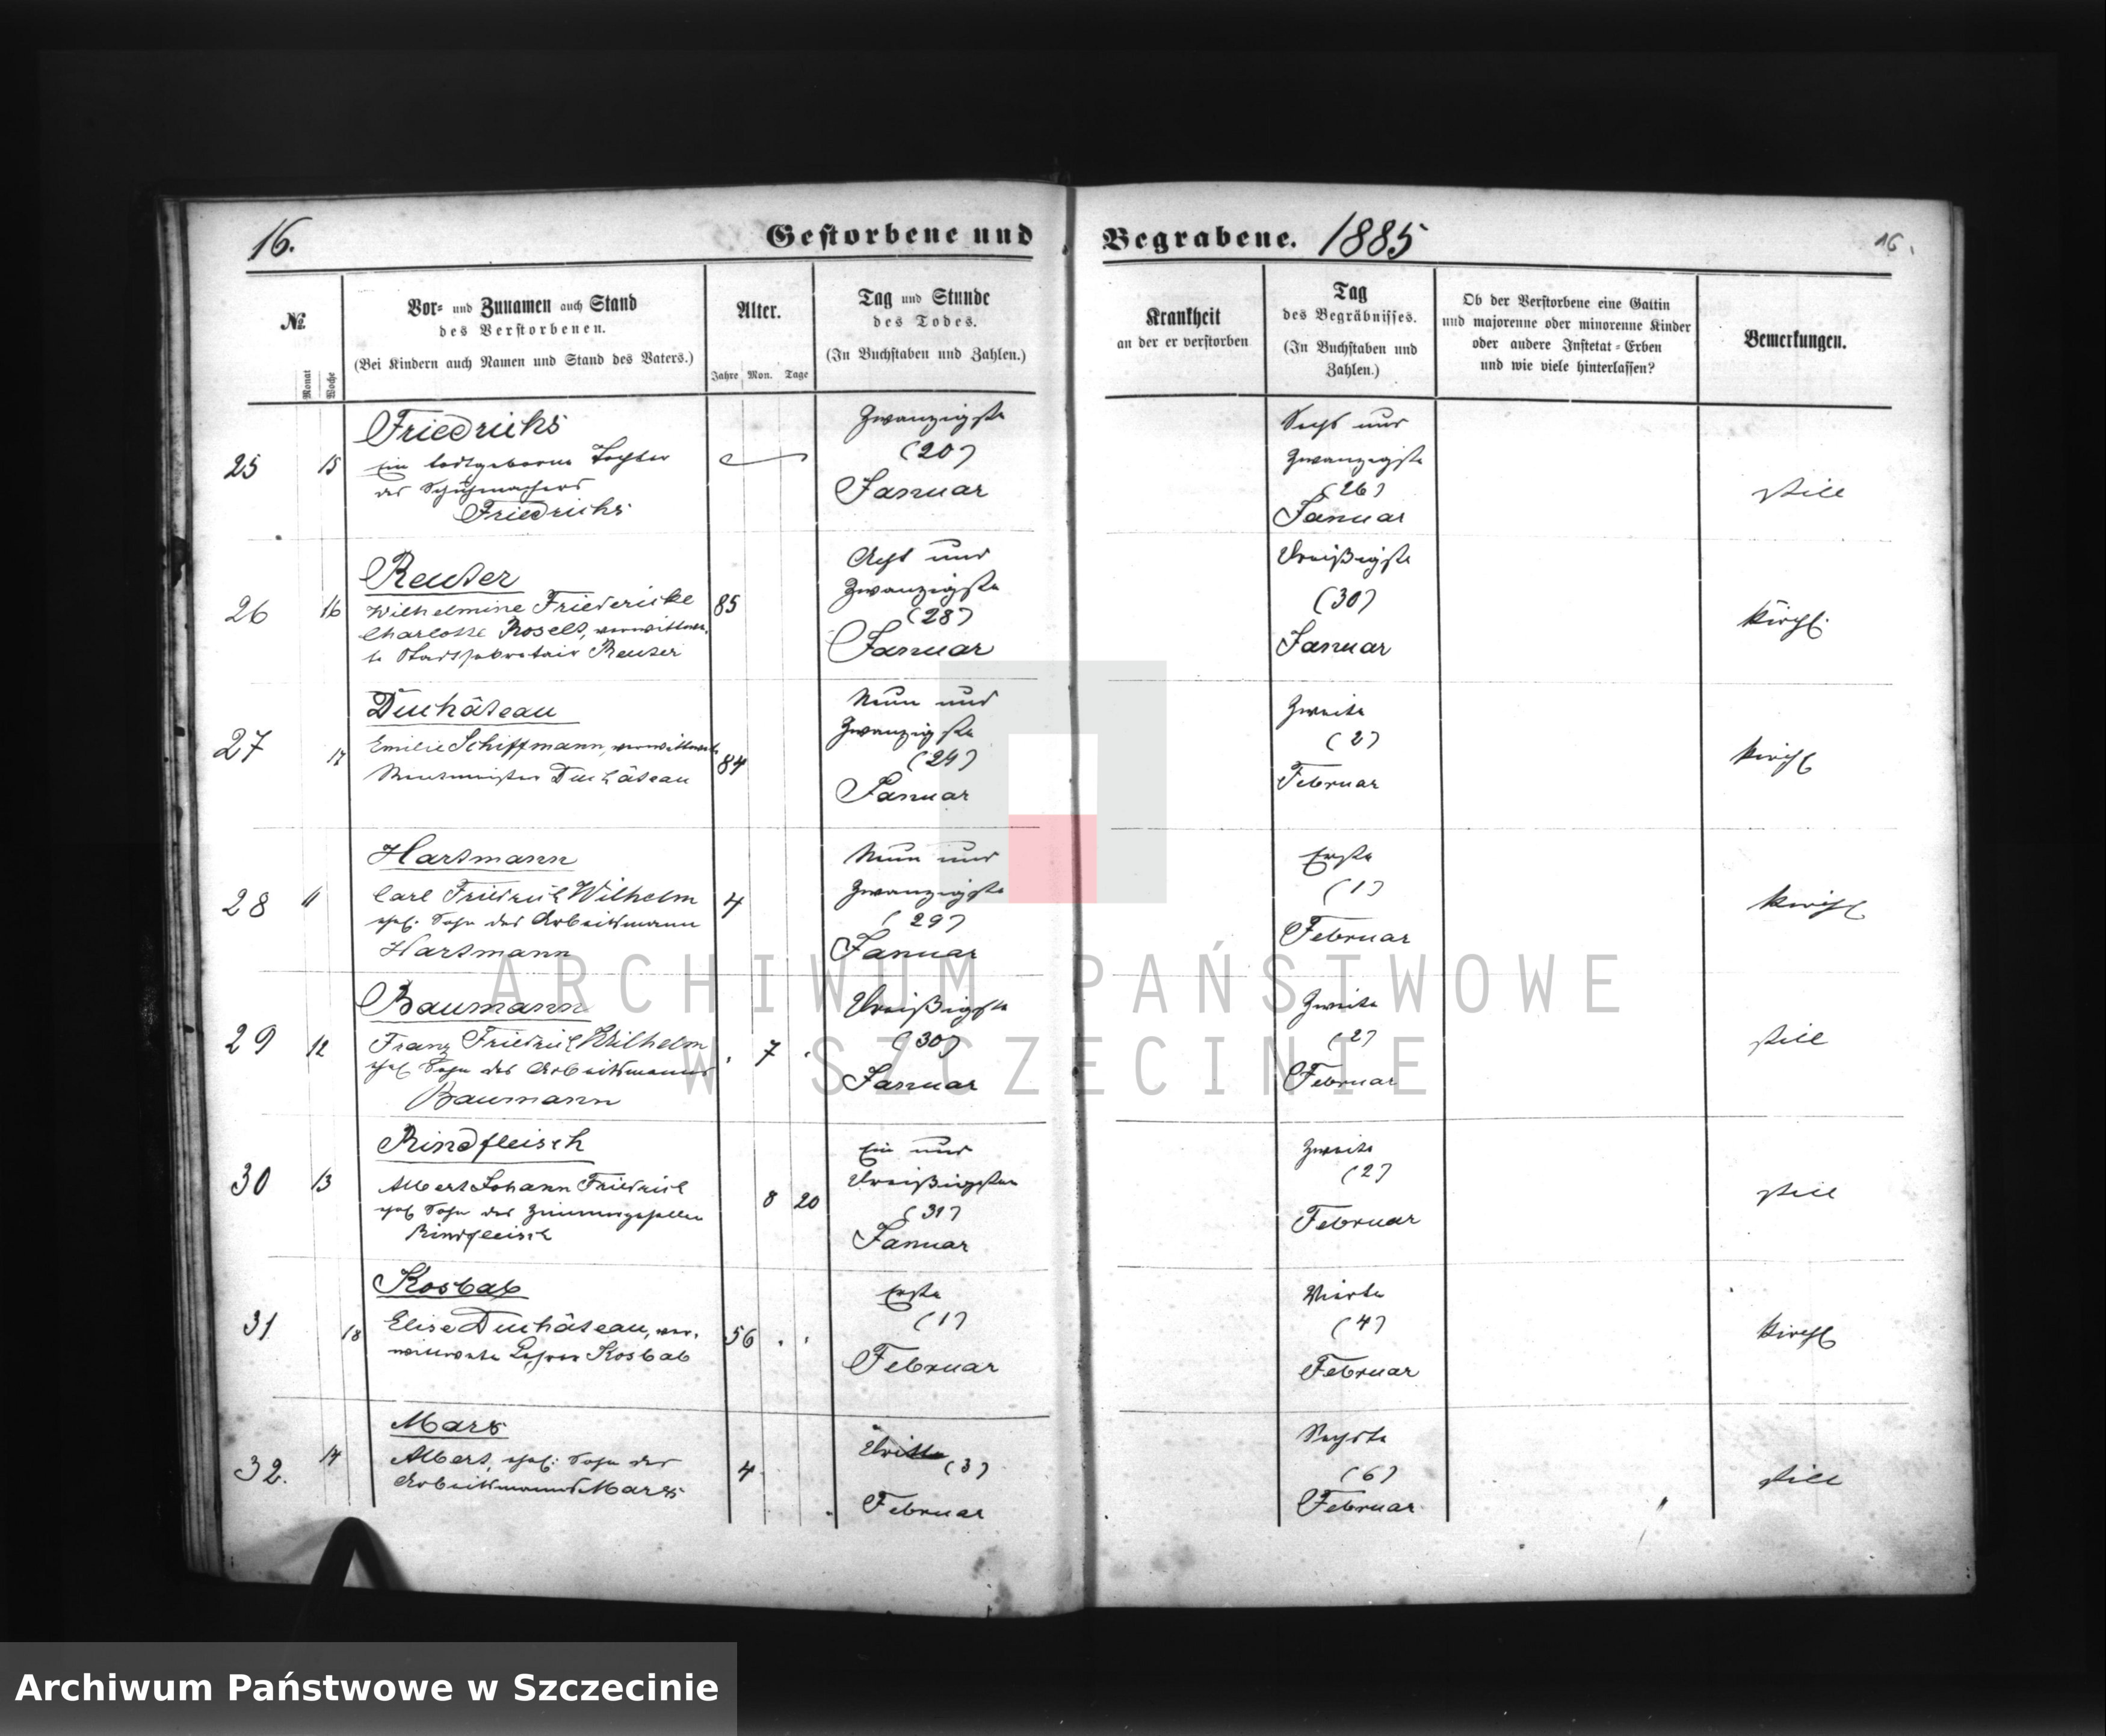 16.
Gestorbene und
Begrabene. 1885
16.
№
Monat
Woche
Vor- und Zunamen auch Stand
des Verstorbenen.
(Bei Kindern auch Namen und Stand des Vaters.)
Alter.
Jahre Mon. Tage
Tag und Stunde
des Todes.
(In Buchstaben und Zahlen.)
Krankheit
an der er verstorben
Tag
des Begräbnisses.
(In Buchstaben und
Zahlen.)
Ob der Verstorbene eine Gattin
und majorenne oder minorenne Kinder
oder andere Instetat-Erben
und wie viele hinterlassen?
Bemerkungen.
25
15
Friedrichs
Ein todtgeborne Tochter
des Schuhmachers
Friedrichs
Zwanzigste
(20)
Januar
Sechs und
Zwanzigste
(26)
Januar
still
26
16
Reuter
Wilhelmine Friedericke
Charlotte Roselt, verwittwe-
te Stadtsekretair Reuter
85
Acht und
Zwanzigste
(28)
Januar
Dreißigste
(30)
Januar
kirchl.
27
17
Duchâteau
Emilie Schiffmann, verwittwete
Rentmeister Duchâteau
84
Neun und
Zwanzigste
(29)
Januar
Zweite
(2)
Februar
kirchl
28
11
Hartmann
Carl Friedrich Wilhelm
ehel. Sohn des Arbeitsmann
Hartmann
4
Neun und
Zwanzigste
(29)
Januar
Erste
(1)
Februar
kirchl
29
12
Baumann
Franz Friedrich Wilhelm
ehel Sohn des Arbeitsmanns
Baumann
7
Dreißigste
(30)
Januar
Zweite
(2)
Februar
still
30
13
Rindfleisch
Albert Johann Friedrich
ehel Sohn des Zimmergesellen
Rindfleisch
8 20
Ein und
Dreißigsten
(31)
Januar
Zweite
(2)
Februar
still
31
18
Kosbab
Elise Duchâteau, ver-
wittwete Lehrer Kosbab
56
Erste
(1)
Februar
Vierte
(4)
Februar
kirchl
32.
14
Marx
Albert, ehel: Sohn des
Arbeitsmanns Marx
4
Dritte (3)
Februar
Sechste
(6)
Februar
still
ARCHIWUM PAŃSTWOWE
W SZCZECINIE
Archiwum Państwowe w Szczecinie